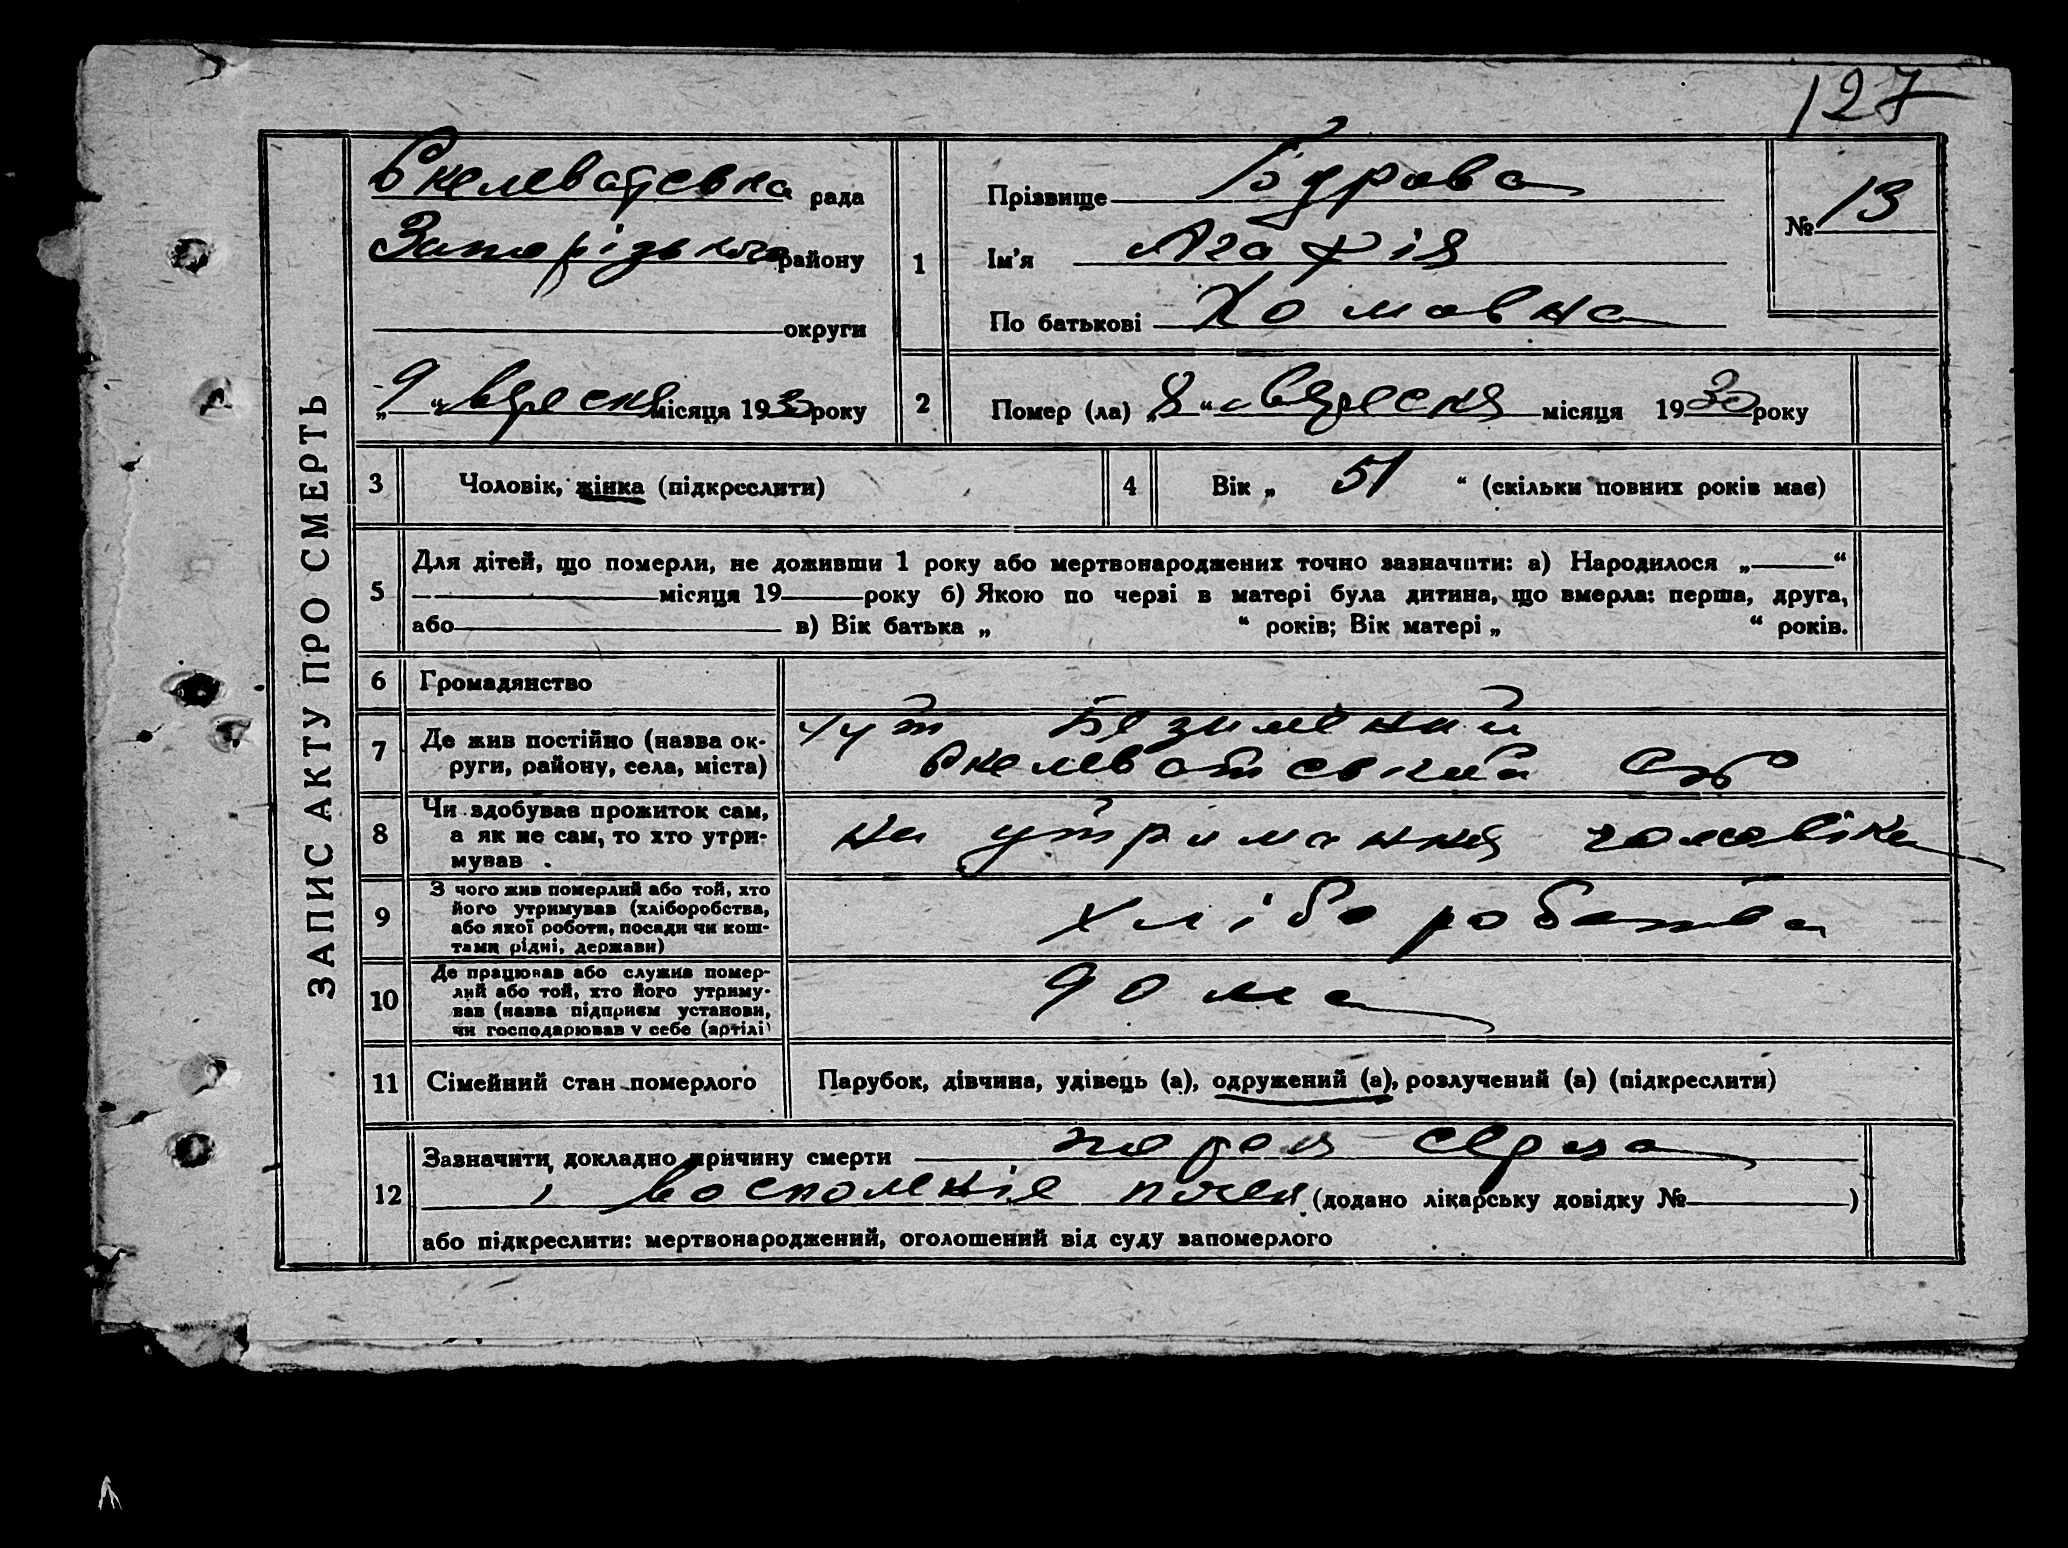 127
ЗАПИС АКТУ ПРО СМЕРТЬ
Скелеватська рада
Запорізького району
округи
„9“ вересня місяця 1930 року
1
Прізвище
Ім'я Агафія
По батькові Хомавна
№ 13
2 Помер (ла) „8“ вересня місяця 1930 року
3 Чоловік, жінка (підкреслити)
4 Вік „ 51 “ (скільки повних років має)
5 Для дітей, що померли, не доживши 1 року або мертвонароджених точно зазначити: а) Народилося „ “
місяця 19 року б) Якою по черзі в матері була дитина, що вмерла: перша, друга,
або в) Вік батька „ “ років; Вік матері „ “ років.
6 Громадянство
7 Де жив постійно (назва округи, району, села, міста)
хут Безимений
8 Чи здобував прожиток сам,
а як не сам, то хто утри-
мував .
на утримання чоловіка
9 З чого жив померлий або той, хто
його утримував (хліборобства,
або якої роботи, посади чи кош-
тами рідні, держави)
хлібо робства
10 Де працював або служив помер-
лий або той, хто його утриму-
вав (назва підприєм установи,
чи господарював у себе (артілі)
дома
11 Сімейний стан померлого
Парубок, дівчина, удівець (а), одружений (а), розлучений (а) (підкреслити)
12 Зазначити докладно причину смерти порок серца
і восполеніе почек (додано лікарську довідку № )
або підкреслити: мертвонароджений, оголошений від суду запомерлого